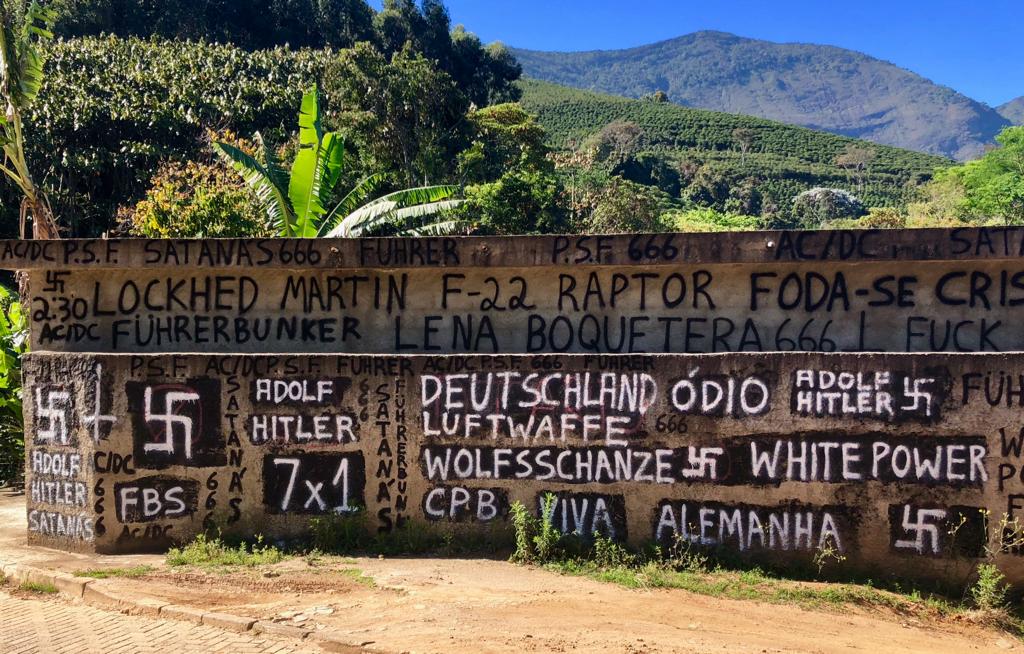 AC/DC P.S.F. SATANÁS 666 FUHRER P.S.F 666 AC/DC SATA
卐
2.30 LOCKHED MARTIN F-22 RAPTOR FODA-SE CRIS
AC/DC FÜHRERBUNKER LENA BOQUETERA 666 L FUCK
P.S.F AC/DC P.S.F. FUHRER AC/DC P.S.F. 666 FUHRER
卐
卐
ADOLF
HITLER
ADOLF
HITLER
SATANÁS
AC/DC
666
FBS
AC/DC
SATANÁS
666
7x1
666
SATANÁS
FÜHRERBUN
DEUTSCHLAND ÓDIO
LUFTWAFFE 666
WOLFSSCHANZE 卐 WHITE POWER
CPB VIVA ALEMANHA 卐
ADOLF
HITLER 卐
FÜH